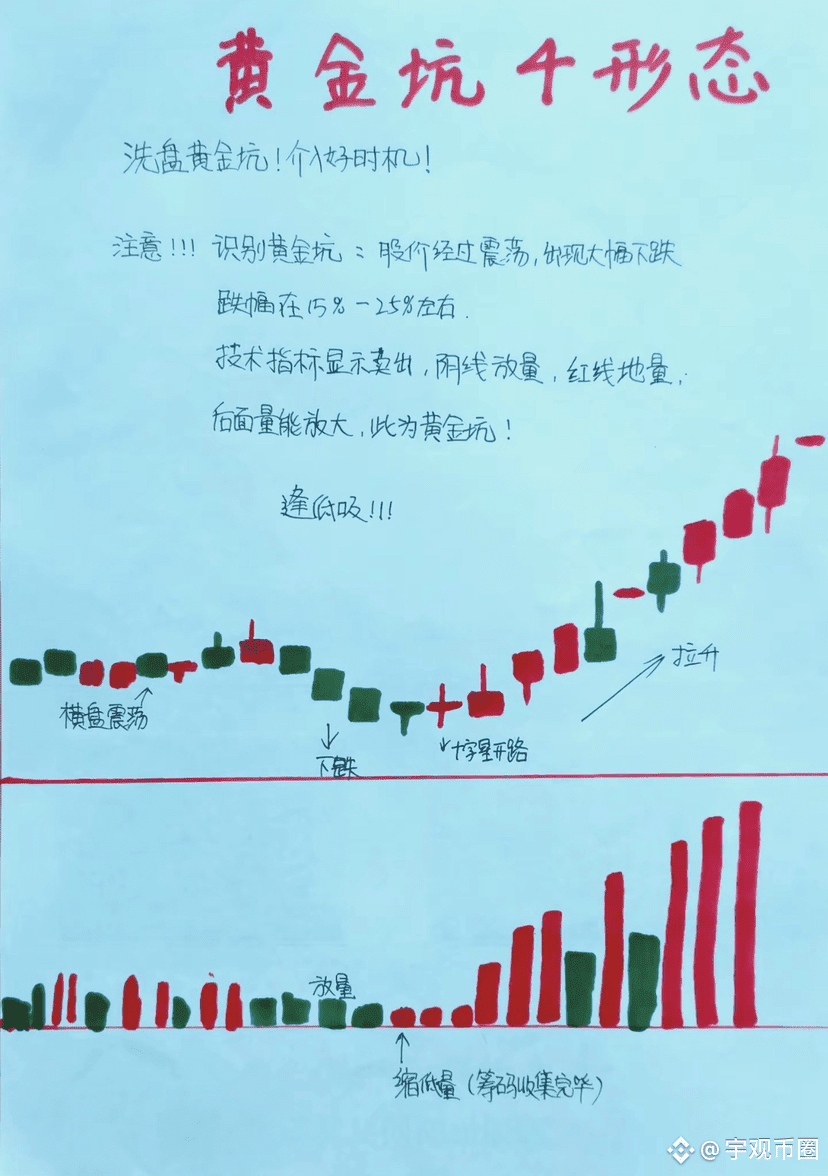 黄金坑4形态
洗盘黄金坑！介入好时机！
注意!!! 识别黄金坑：股价经过震荡，出现大幅下跌
跌幅在15%-25%左右.
技术指标显示卖出，阴线放量，红线地量，
后面量能放大，此为黄金坑！
逢低吸!!!
拉升
横盘震荡
十字星开路
下跌
放量
缩低量（筹码收集完毕）
@宇观币圈